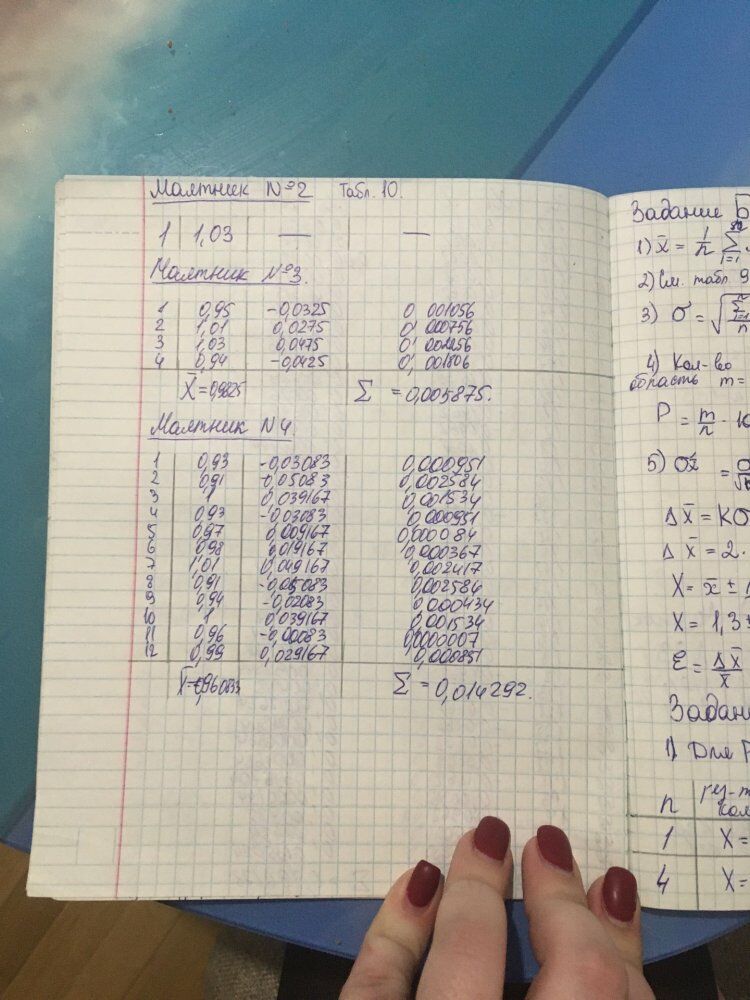 Маятник №2 Табл. 10.
1 1,03 — —
Маятник №3.
1 0,95 -0,0325 0 001056
2 1,01 0,0275 0, 000756
3 1,03 0,0475 0,
4 0,94 -0,0425 0, 001806
X̄ = 0,9825 Σ = 0,005875.
Маятник N4.
1 0,93 -0,03083 0,000951
2 0,91 -0,05083 0,002584
3 1 0,039167 0,001534
4 0,93 -0,03083 0,000951
5 0,97 0,009167 0,000084
6 0,98 0,019167 0,000367
7 1,01 0,049167 0,002417
8 0,91 -0,05083 0,002584
9 0,94 -0,02083 0,000434
10 1 0,039167 0,001534
11 0,96 -0,00083 0,0000007
12 0,99 0,029167
X̄=0,960833 Σ = 0,014292.
Задание Б
1) x̄ = 1/n Σ i=1
2) См. табл. 9
3) σ = √ Σ i=1 n
4) Кол-во
область m =
P = m/n · 10
5) σx̄ =
Δ X̄ = Kσ
Δ X̄ = 2.
X = x̄ ±
X = 1,3
ε = Δ X̄ / x̄
Задани
1) Для
n
1 X =
4 X =